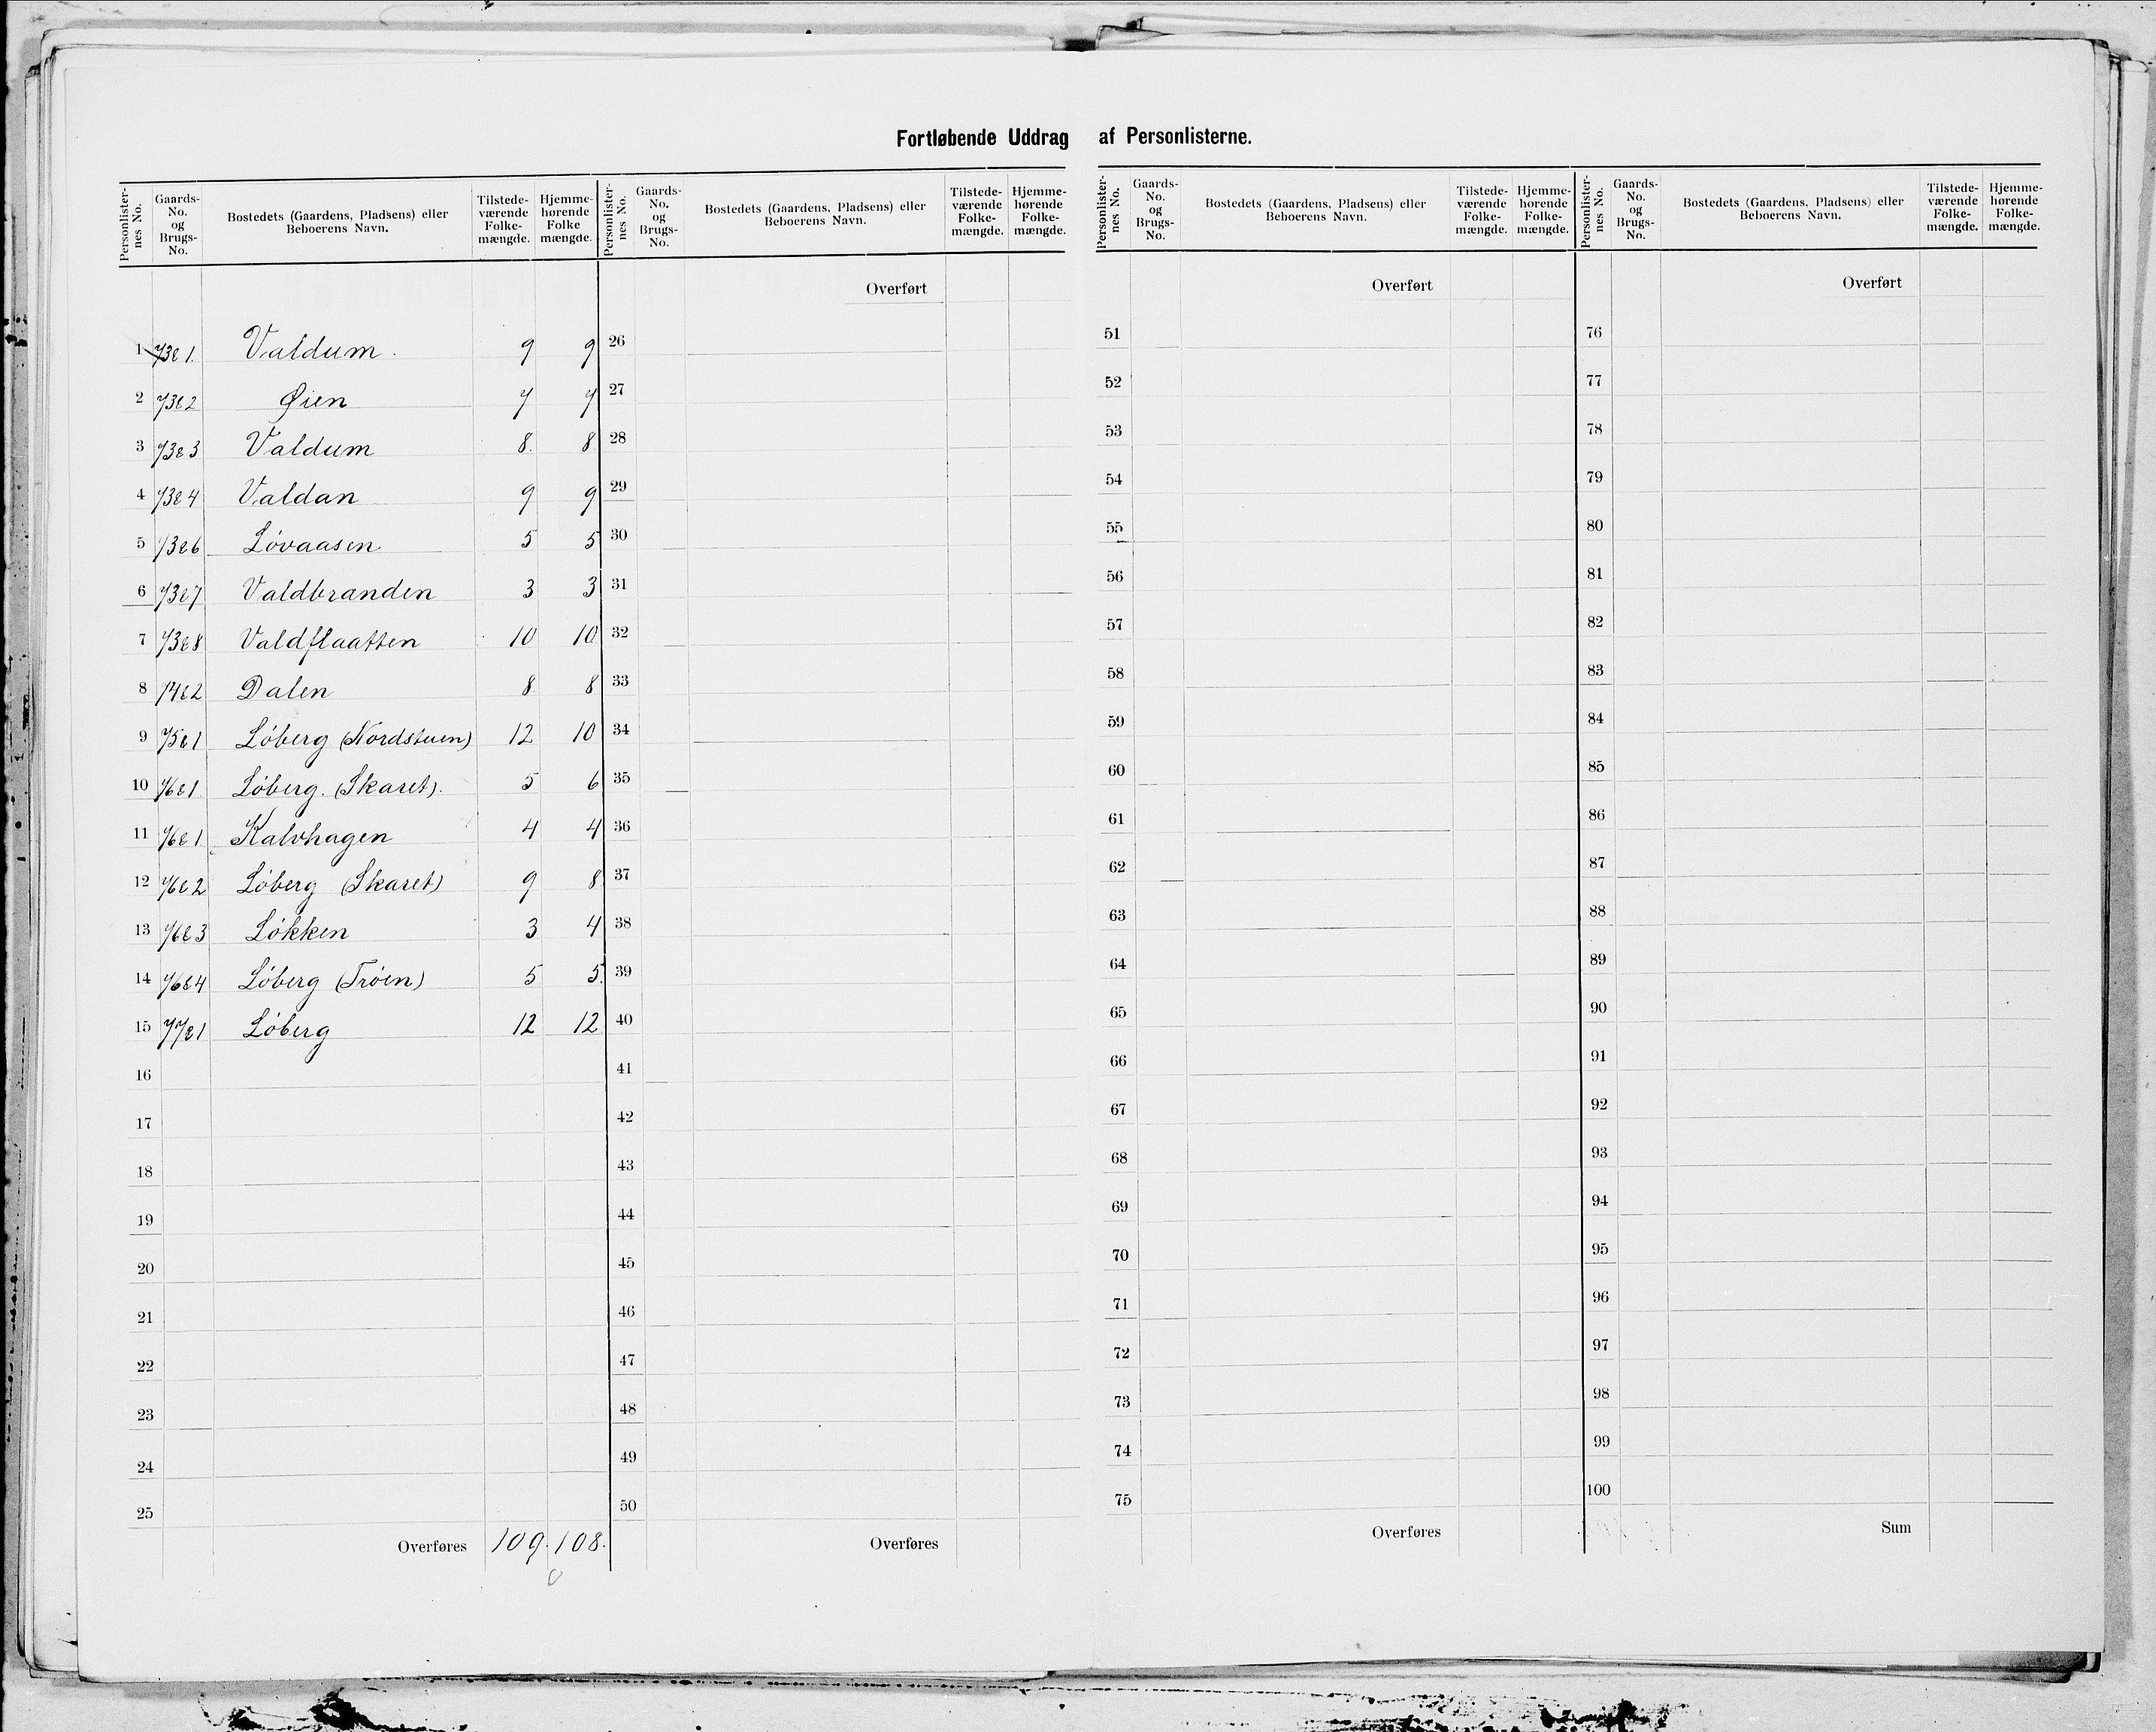 Fortløbende Uddrag af Personlisterne.
Personlister-nes No. | Gaards-No. og Brugs-No. | Bostedets (Gaardens, Pladsens) eller Beboerens Navn. | Tilstede-værende Folke-mængde. | Hjemme-hørende Folke mængde.
1 73 & 1. Valdum. 9 9
2 73 & 2 Øien 7 7
3 73 & 3 Valdum 8. 8
4 73 & 4 Valdan 9 9
5 73 & 6 Løvaasen 5 5
6 73 & 7 Valdbranden 3 3
7 73 & 8 Valdflaatten 10 10
8 74 & 2 Dalen 8 8
9 75 & 1 Løberg (Nordstuen) 12 10
10 76 & 1 Løberg. (Skaret). 5 6
11 76 & 1 Kalvhagen 4 4
12 76 & 2 Løberg (Skaret) 9 8
13 76 & 3 Løkken 3 4
14 76 & 4 Løberg (Trøen) 5 5.
15 77 & 1 Løberg 12 12
16
17
18
19
20
21
22
23
24
25
Overføres 109. 108.
Personlister-nes No. | Gaards-No. og Brugs-No. | Bostedets (Gaardens, Pladsens) eller Beboerens Navn. | Tilstede-værende Folke-mængde. | Hjemme-hørende Folke-mængde.
Overført
26
27
28
29
30
31
32
33
34
35
36
37
38
39
40
41
42
43
44
45
46
47
48
49
50
Overføres
Personlister-nes No. | Gaards-No. og Brugs-No. | Bostedets (Gaardens, Pladsens) eller Beboerens Navn. | Tilstede-værende Folke-mængde. | Hjemme-hørende Folke-mængde.
Overført
51
52
53
54
55
56
57
58
59
60
61
62
63
64
65
66
67
68
69
70
71
72
73
74
75
Overføres
Personlister-nes No. | Gaards-No. og Brugs-No. | Bostedets (Gaardens, Pladsens) eller Beboerens Navn. | Tilstede-værende Folke-mængde. | Hjemme-hørende Folke-mængde.
Overført
76
77
78
79
80
81
82
83
84
85
86
87
88
89
90
91
92
93
94
95
96
97
98
99
100
Sum